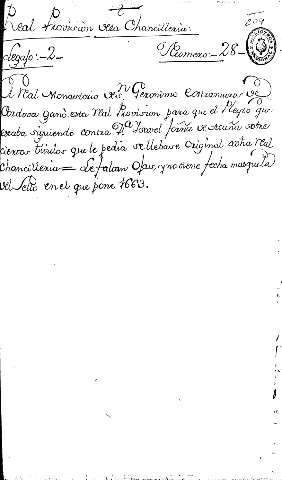 Real Provision de la Chancilleria. 209
Legajo=2= Numero=28=
El Rl Monasterio de Sn Geronimo extramuros de
Cordova ganó esta Rl Provision para que el Pleyto que
estaba siguiendo contra Da Isavel de Acuña sobre
ciertos titulos que le pedia se llebase original a dha Rl
Chancilleria= Le faltan Ojas, y no tiene fecha mas que la
del Sello en el que pone 1663.